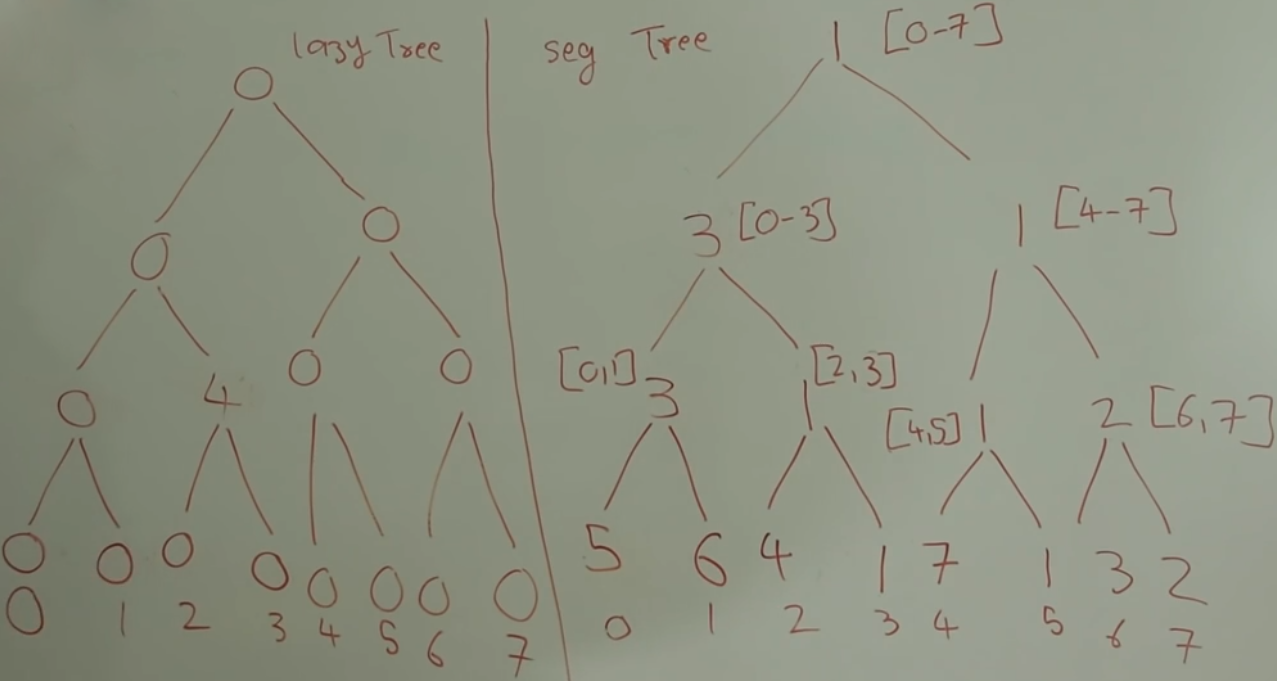 lazy Tree
0
0 0
0 4 0 0
0 0 0 0 0 0 0 0
0 1 2 3 4 5 6 7
seg Tree
1 [0-7]
3 [0-3] 1 [4-7]
[0,1] 3 1 [2,3] [4,5] 1 2 [6,7]
5 6 4 1 7 1 3 2
0 1 2 3 4 5 6 7